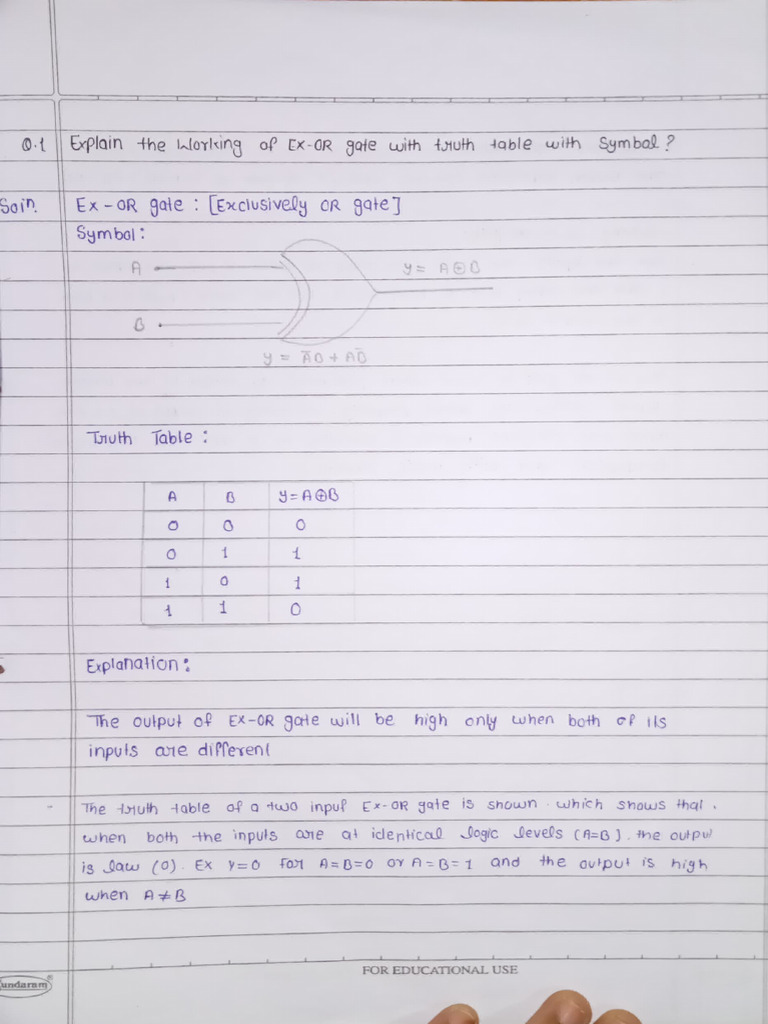 Q.1 Explain the Working of EX-OR gate with truth table with Symbol?
Soln. EX-OR gate : [Exclusively OR gate]
Symbol:
A y = A⊕B
B
y = A̅B + AB̅
Truth Table :
A B y = A⊕B
0 0 0
0 1 1
1 0 1
1 1 0
Explanation:
The output of EX-OR gate will be high only when both of its
inputs are different
- The truth table of a two input EX-OR gate is shown. which shows that,
when both the inputs are at identical logic levels (A=B). the outpu
is law (0). Ex Y=0 for A=B=0 or A=B=1 and the output is high
when A≠B
FOR EDUCATIONAL USE
undaram®